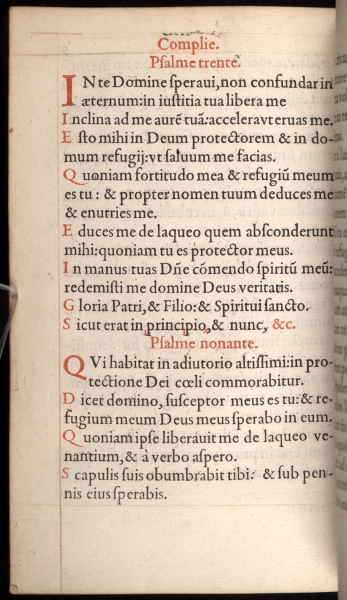 Complie.
Psalme trente.
IN te Domine speraui, non confundar in
æternum: in iustitia tua libera me
Inclina ad me aurē tuā: accelera vt eruas me.
Esto mihi in Deum protectorem & in do-
mum refugij: vt saluum me facias.
Quoniam fortitudo mea & refugiū meum
es tu: & propter nomen tuum deduces me
& enutries me.
Educes me de laqueo quem absconderunt
mihi: quoniam tu es protector meus.
In manus tuas Dñe cōmendo spiritū meū:
redemisti me domine Deus veritatis.
Gloria Patri, & Filio: & Spiritui sancto.
Sicut erat in principio, & nunc, &c.
Psalme nonante.
QVi habitat in adiutorio altissimi: in pro-
tectione Dei cœli commorabitur.
Dicet domino, susceptor meus es tu: & re-
fugium meum Deus meus sperabo in eum.
Quoniam ipse liberauit me de laqueo ve-
nantium, & à verbo aspero.
Scapulis suis obumbrabit tibi: & sub pen-
nis eius sperabis.